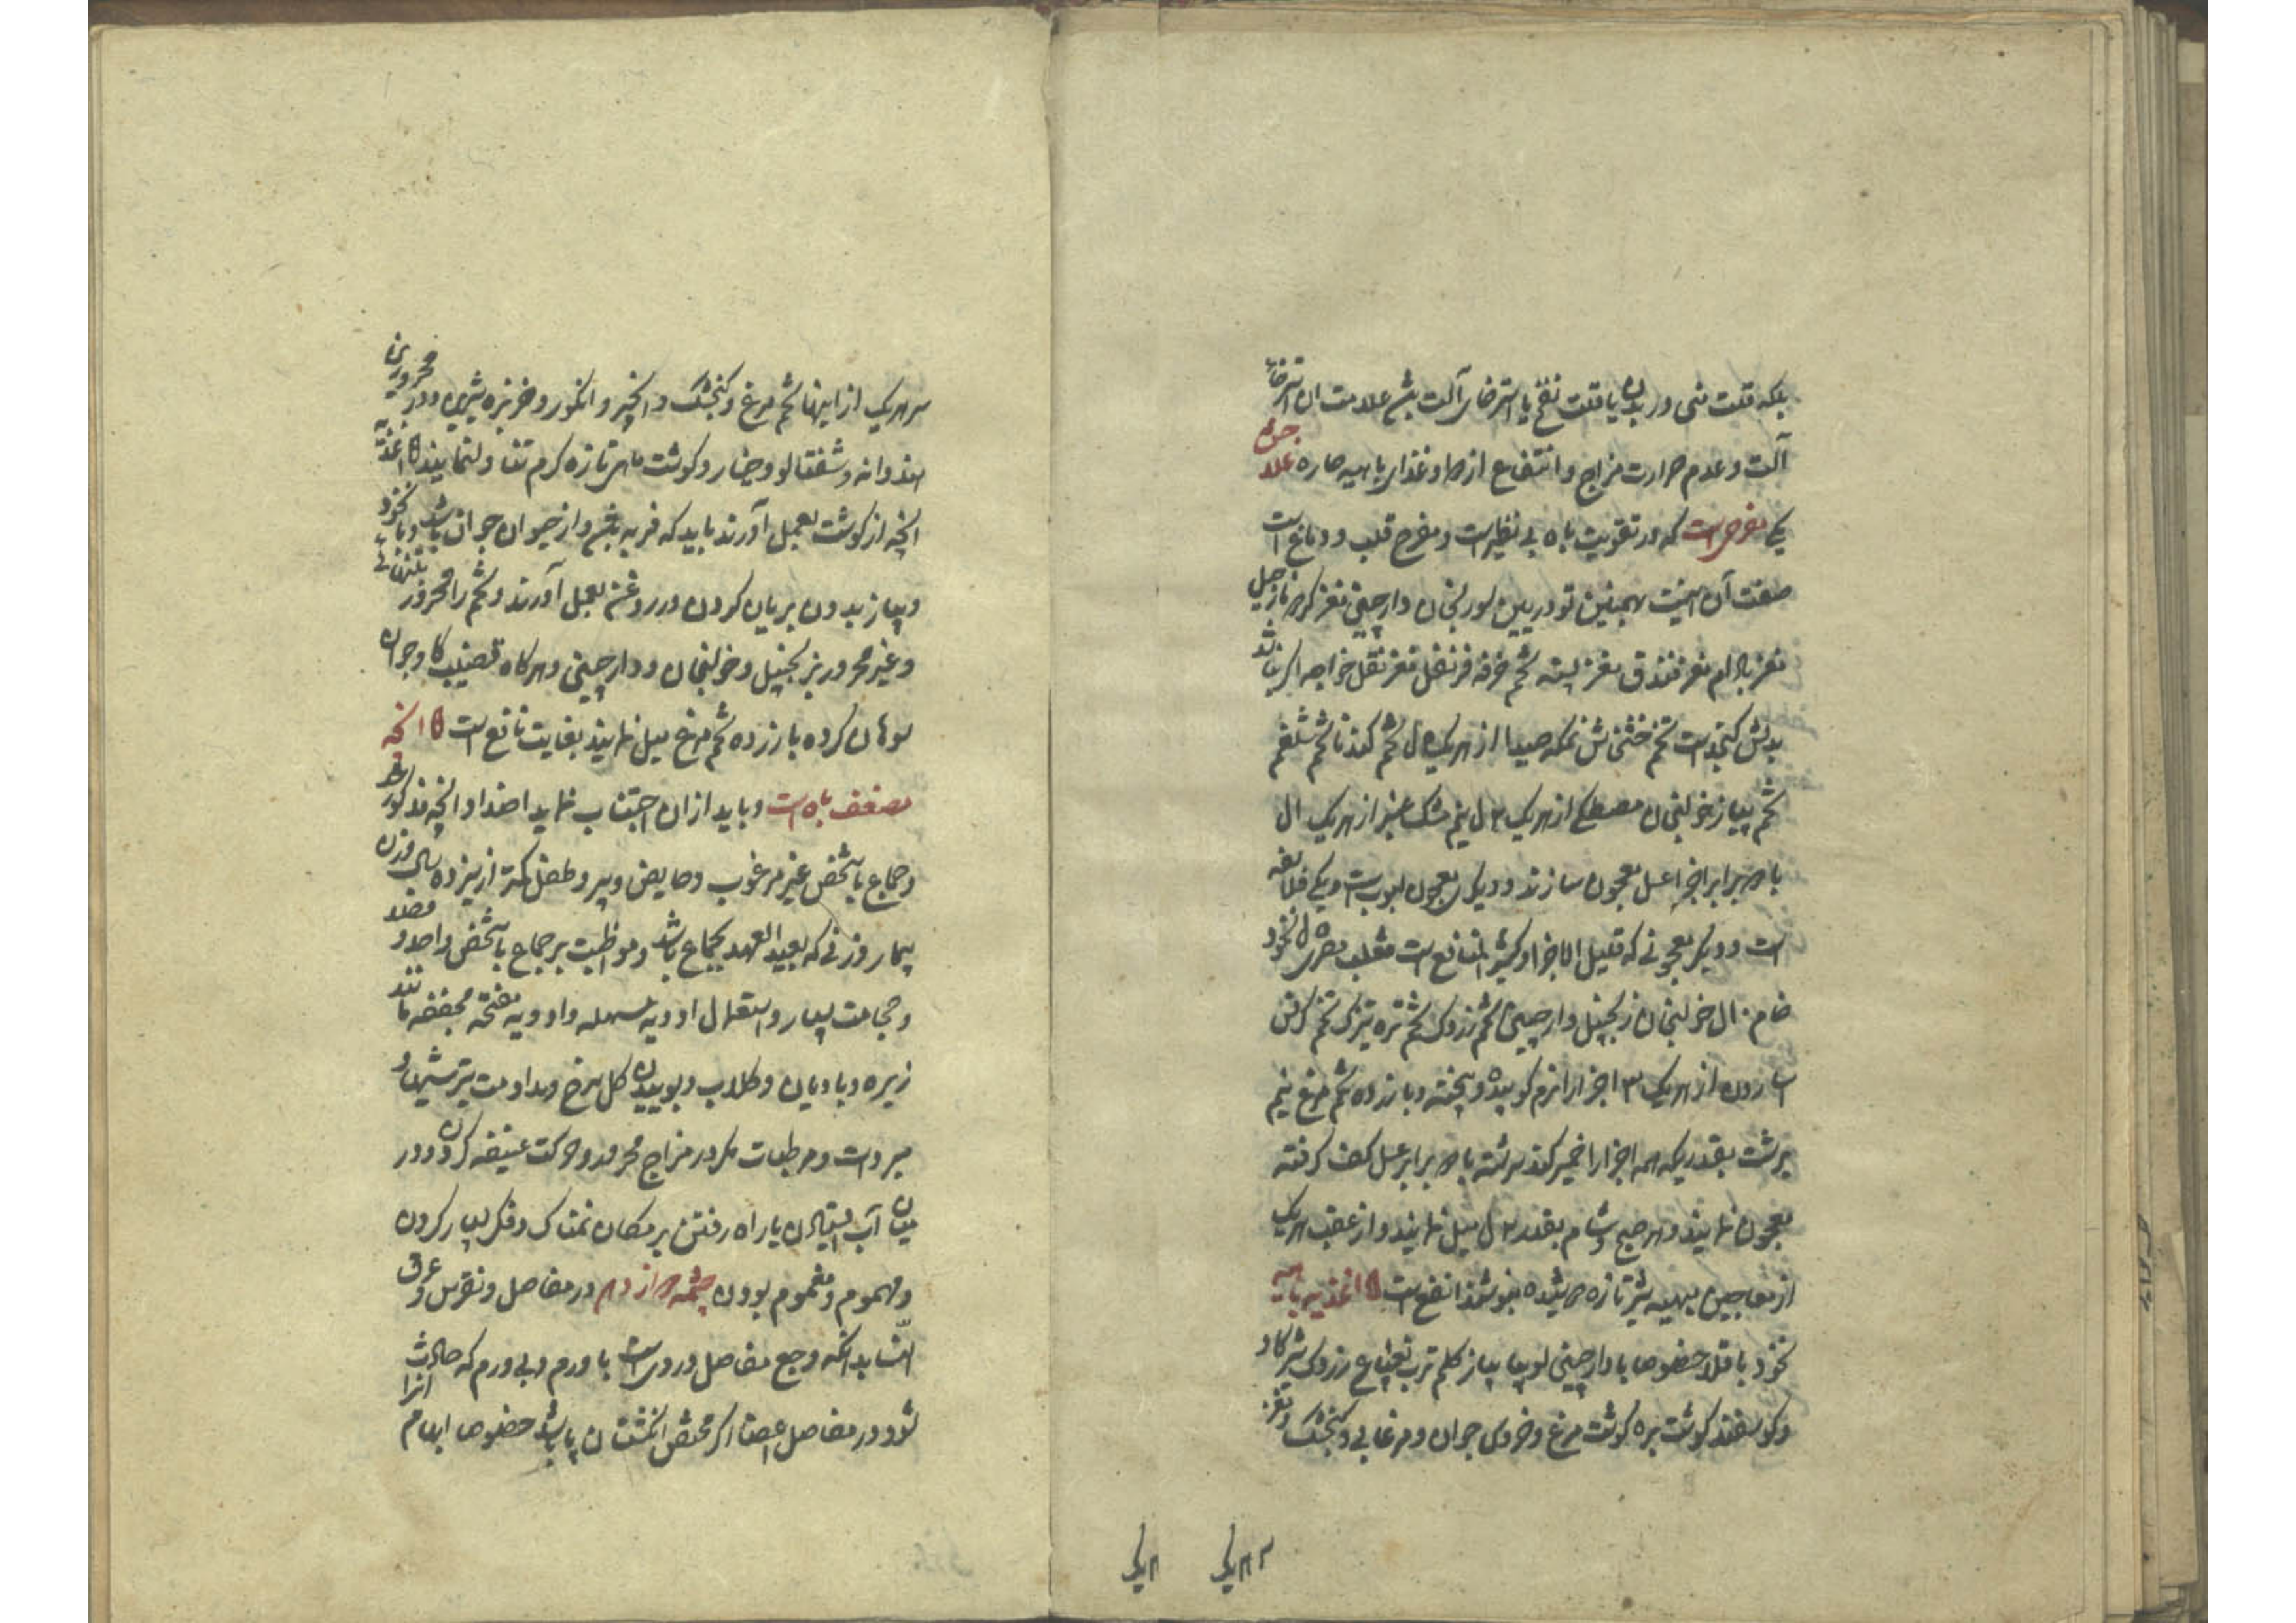 بلکه قلت منی در بدن یا قلت نفخ یا استرخای آلت بش علامت ان استرخاء
آلت و عدم حرارت مزاج و انتفاع از دوا و غذای باهیه حاره علاج
یکی مفرح است که در تقویت باه بی نظیر است و مفرح قلب و دماغ است
صفت آن بهمنین تودریین بوزیدان دارچینی مغز نارجیل
مغز بادام مغز فندق مغز پسته تخم خرفه قرنفل مغز نقل خواجه اگر نباشد
بدلش کنجد است تخم خشخاش از هریک ل تخم گندنا تخم شلغم
تخم پیاز خولنجان مصطکی از هریک ل نیم مشک عنبر از هریک ال
برابر اجزا عسل معجون سازند و دیگر معجون لبوب است و یکی فلاسفه
است و دیگر معجونی که قلیل الاجزا و کثیر المنافع است ثعلب مصری نخود
خام ال خولنجان زنجبیل دارچینی تخم زردک تخم تره تیزک تخم کرفس
از هریک ۳ اجزا را نرم کوبیده و بیخته و با زرده تخم مرغ نیم
برشت بقدریکه همه اجزا را خمیر کند سرشته با برابر عسل کف گرفته
معجون نمایند و هر صبح و شام بقدر ل میل نمایند و از عقب هریک
از معاجین بهیه شیر تازه دوشیده بنوشند انفع است اغذیه باهیه
نخود باقلا خصوصا با دارچینی لوبیا پیاز کلم ترب زردک شیر گاو
و گوسفند گوشت بره گوشت مرغ و خروس جوان و مرغابی و گنجشک و مغز
هریک
سر هریک از اینها تخم مرغ و گنجشک و انجیر و انگور و خربزه شیرین و در محرورین
هندوانه و شفتالو و خیار و گوشت ماهی تازه گرم تناول نمایند اغذیه
انچه از گوشت بعمل آورند باید که فربه بش و از حیوان جوان باشد و با نخود
و پیاز بدون بریان کردن در روغن بعمل آورند و تخم را محرور
و غیر محرور بزنجبیل و خولنجان و دارچینی و هرگاه قضیب گاو جوان
سوهان کرده با زرده تخم مرغ میل نمایند بغایت نافع است انچه
مضعف باه است و باید از ان اجتناب نماید اضداد انچه مذکور شد
و جماع با شخص غیر مرغوب و حایض و پیر و طفل کمتر از پنزده سال و زن
بیمار و زنی که بعید العهد بجماع باشد و مواظبت بر جماع با شخص واحد و فصد
و حجامت بسیار و استعمال ادویه مسهله و ادویه مفتحه مجففه مانند
زیره و بادیان و گلاب و بوییدن گل سرخ و مداومت بترشیها و
مبردات و مرطبات مگر در مزاج محرور و حرکت عنیفه کردن و در
میان آب ایستادن یا راه رفتن بر مکان نمناک و فکر بسیار کردن
و مهموم و مغموم بودن چشمه دوازدهم در مفاصل و نقرس و عرق
النسا بدانکه وجع مفاصل دردی است با ورم و بی ورم که حادث
شود در مفاصل اعضا اگر مختص انگشتان پا باشد خصوصا ابهام انرا